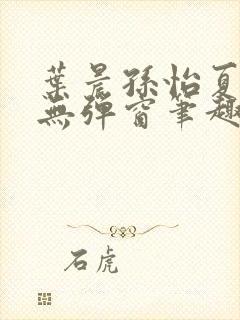 葉晨孫怡夏
無彈窗筆趣
石虎